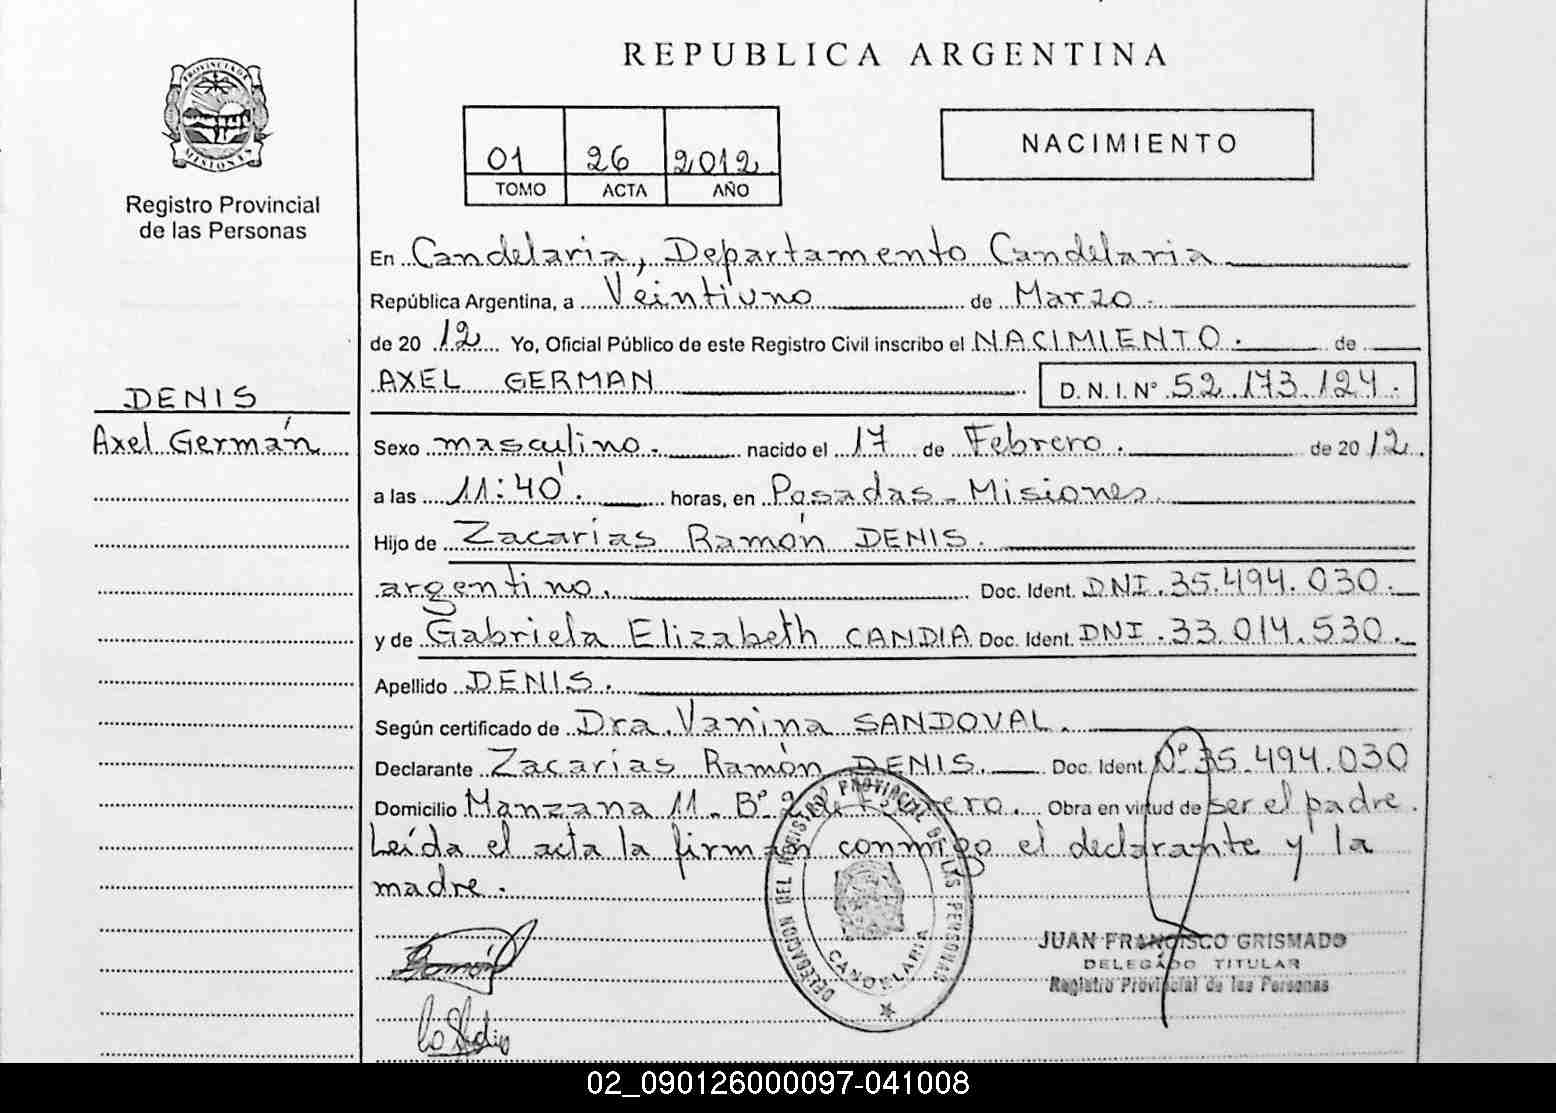 REPUBLICA ARGENTINA
PROVINCIA DE
MISIONES
Registro Provincial
de las Personas
01 26 2012
TOMO ACTA AÑO
NACIMIENTO
En Candelaria, Departamento Candelaria
República Argentina, a Veintiuno de Marzo.
de 20 12 Yo, Oficial Público de este Registro Civil inscribo el NACIMIENTO. de
AXEL GERMAN D. N. I. Nº 52.173.124.
DENIS
Axel Germán
Sexo masculino. nacido el 17 de Febrero. de 20 12.
a las 11:40'. horas, en Posadas - Misiones.
Hijo de Zacarías Ramón DENIS.
argentino. Doc. Ident. DNI. 35.494.030.
y de Gabriela Elizabeth CANDIA Doc. Ident. DNI. 33.014.530.
Apellido DENIS.
Según certificado de Dra. Vanina SANDOVAL.
Declarante Zacarías Ramón DENIS. Doc. Ident. Nº 35.494.030
Domicilio Manzana 11. Bº 2 de Febrero. Obra en virtud de ser el padre.
Leída el acta la firman conmigo el declarante y la
madre.
DELEGACION DEL REGISTRO PROVINCIAL DE LAS PERSONAS
CANDELARIA
JUAN FRANCISCO GRISMADO
DELEGADO TITULAR
Registro Provincial de las Personas
02_090126000097-041008